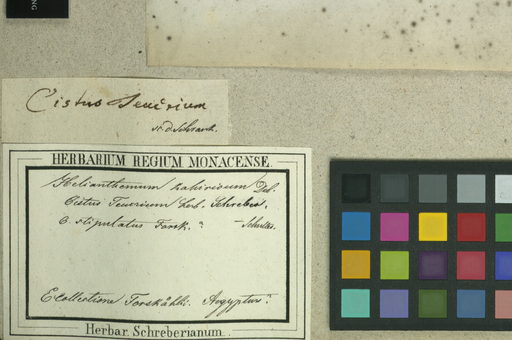 Cistus Teucrium
v. d. Schrank.
HERBARIUM REGIUM MONACENSE.
Helianthemum kahiricum Del.
Cistus Teucrium herb. Schreber,
C. stipulatus Forsk. ?
– Schultes.
E collectione Forskåhlii. Aegyptus?
Herbar. Schreberianum.